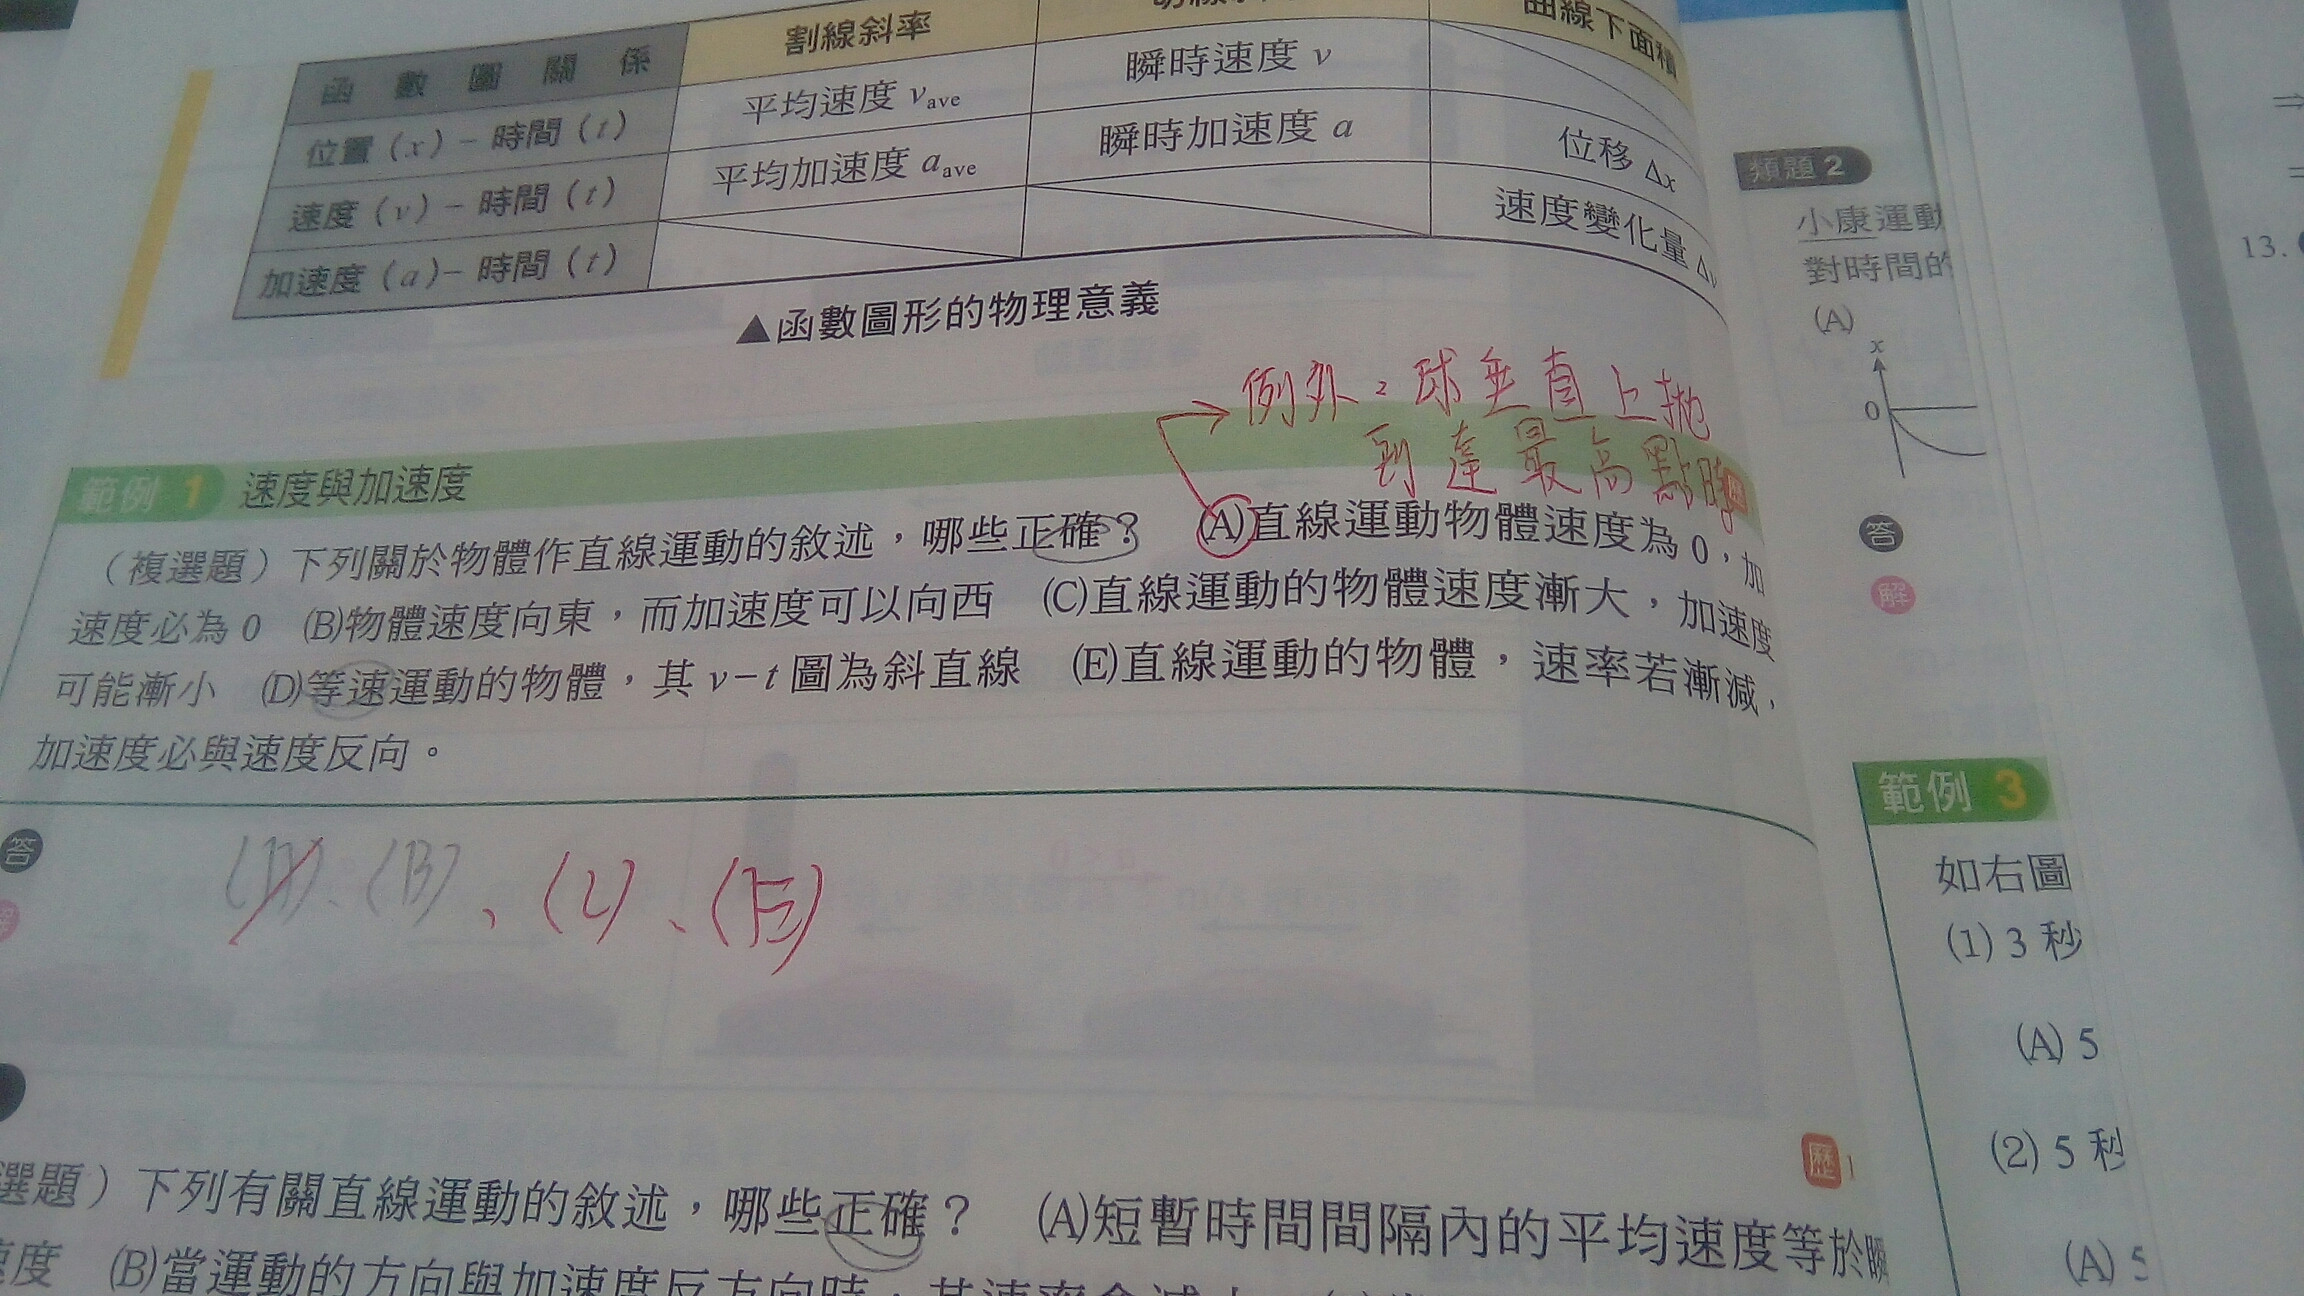 函數圖關係 割線斜率 曲線下面積
位置(x)-時間(t) 平均速度 vave 瞬時速度 v
速度(v)-時間(t) 平均加速度 aave 瞬時加速度 a 位移 Δx
加速度(a)-時間(t) 速度變化量 Δv
▲函數圖形的物理意義
例外:球垂直上拋
到達最高點時
範例 1 速度與加速度
(複選題)下列關於物體作直線運動的敘述,哪些正確? (A)直線運動物體速度為 0,加
速度必為 0 (B)物體速度向東,而加速度可以向西 (C)直線運動的物體速度漸大,加速度
可能漸小 (D)等速運動的物體,其 v-t 圖為斜直線 (E)直線運動的物體,速率若漸減,
加速度必與速度反向。
答
(A)、(B)、(C)、(E)
解
歷 1
選題)下列有關直線運動的敘述,哪些正確? (A)短暫時間間隔內的平均速度等於瞬
速度 (B)當運動的方向與加速度反方向時,其速率會減小
類題 2
小康運動
對時間的
(A)
x
0
答
解
範例 3
如右圖
(1) 3 秒
(A) 5
(2) 5 秒
(A) 5
13.